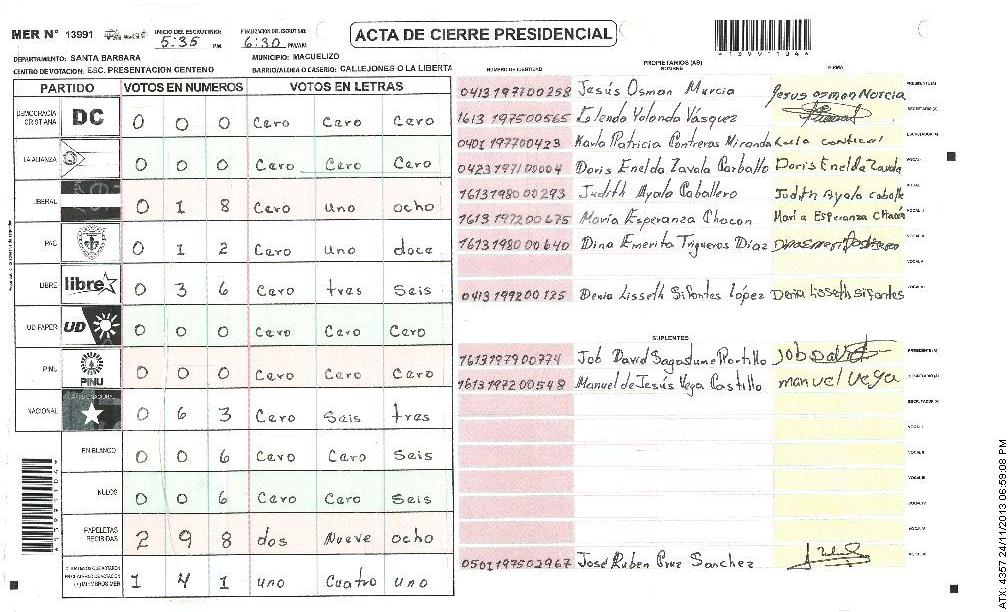 MER N° 13991
INICIO DEL ESCRUTINIO: 5:35 PM
FINALIZACION DEL ESCRUTINIO: 6:30 PM/AM
ACTA DE CIERRE PRESIDENCIAL
DEPARTAMENTO: SANTA BARBARA MUNICIPIO: MACUELIZO
CENTRO DE VOTACION: ESC. PRESENTACION CENTENO BARRIO/ALDEA O CASERIO: CALLEJONES O LA LIBERTA
PARTIDO VOTOS EN NUMEROS VOTOS EN LETRAS
DEMOCRACIA CRISTIANA DC 0 0 0 Cero Cero Cero
LA ALIANZA 0 0 0 Cero Cero Cero
LIBERAL 0 1 8 Cero uno ocho
PAC 0 1 2 Cero uno doce
LIBRE libre 0 3 6 Cero tres Seis
UD FAPER UD 0 0 0 Cero Cero Cero
PINU PINU 0 0 0 Cero Cero Cero
NACIONAL 0 6 3 Cero Seis tres
EN BLANCO 0 0 6 Cero Cero Seis
NULOS 0 0 6 Cero Cero Seis
PAPELETAS RECIBIDAS 2 9 8 dos Nueve ocho
1 4 1 uno Cuatro uno
NUMERO DE IDENTIDAD PROPIETARIOS (AS) NOMBRE FIRMA
0413197700258 Jesús Osman Murcia Jesus osman Murcia
1613 197500565 Yolonda Vásquez
0401 197700423 Karla Patricia Contreras Miranda
0423197100004 Doris Enelda Zavala Carballo Doris Enelda Zavala
1613198000293 Judith Ayala Caballero Judith Ayala
1613 197200675 María Esperanza Chacon María Esperanza Chacón
1613198000640 Dina Emerita Trigueros Díaz
0413 199200125 Denia Lisseth Sifontes López Denia Lisseth Sifontes
SUPLENTES
1613197900774 Job David Sagastume Portillo Job David
1613197200548 Manuel de Jesús Vega Castillo manuel vega
0501197502967 José Ruben Cruz Sanchez
13991104
ATX: 4357 24/11/2013 06:59:08 PM